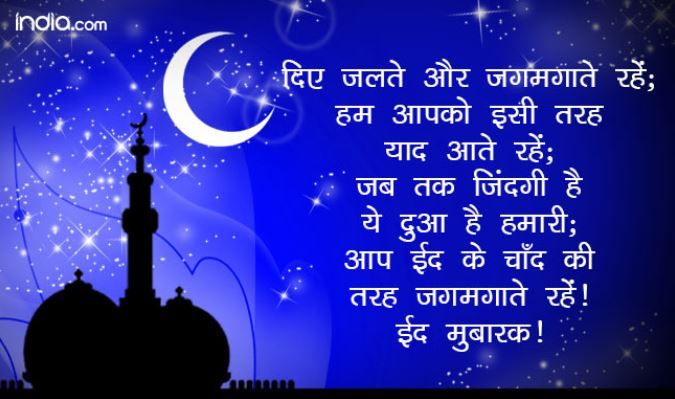 india.com
दिए जलते और जगमगाते रहें;
हम आपको इसी तरह
याद आते रहें;
जब तक जिंदगी है
ये दुआ है हमारी;
आप ईद के चाँद की
तरह जगमगाते रहें!
ईद मुबारक!